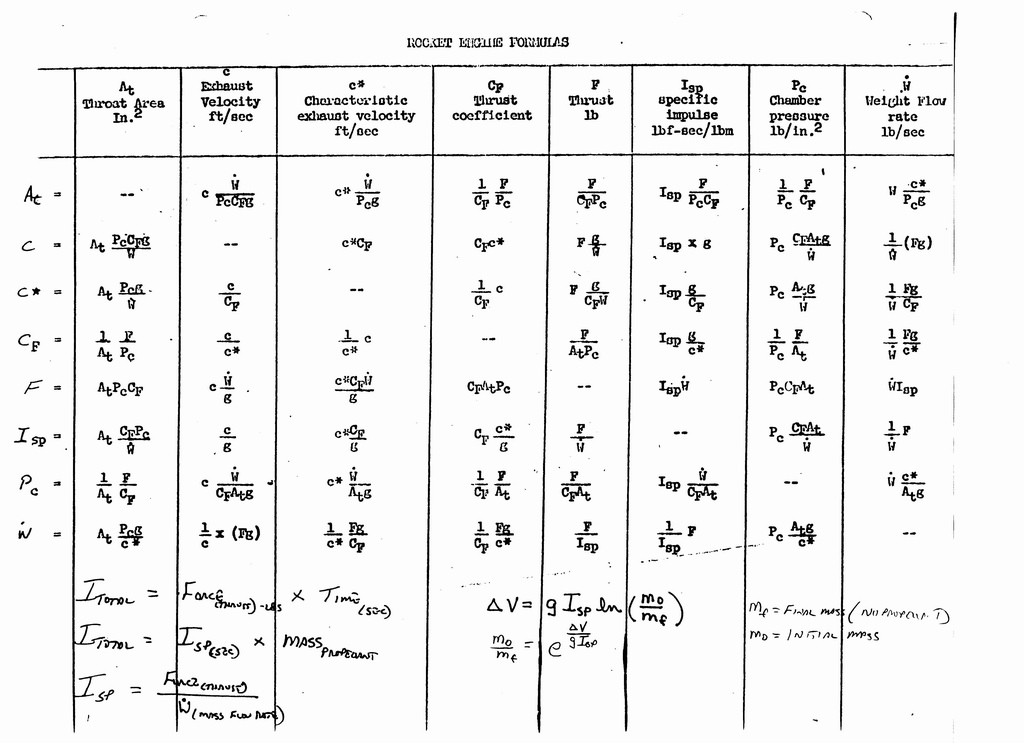 ROCKET ENGINE FORMULAS
At Throat Area In.2 | c Exhaust Velocity ft/sec | c* Characteristic exhaust velocity ft/sec | CF Thrust coefficient | F Thrust lb | Isp specific impulse lbf-sec/lbm | Pc Chamber pressure lb/in.2 | Ẇ Weight Flow rate lb/sec
At = | -- | c Ẇ/PcCFg | c* Ẇ/Pcg | 1/CF F/Pc | F/CFPc | Isp F/PcCF | 1/Pc F/CF | W c*/Pcg
C = | At PcCFg/Ẇ | -- | c*CF | CFc* | F g/Ẇ | Isp x g | Pc CFAtg/Ẇ | 1/Ẇ (Fg)
C* = | At Pcg/Ẇ | c/CF | -- | 1/CF c | F g/CFW | Isp g/CF | Pc Atg/Ẇ | 1/Ẇ Fg/CF
CF = | 1/At F/Pc | c/c* | 1/c* c | -- | F/AtPc | Isp g/c* | 1/Pc F/At | 1/Ẇ Fg/c*
F = | AtPcCF | c Ẇ/g | c*CFẆ/g | CFAtPc | -- | IspẆ | PcCFAt | ẆIsp
Isp = | At CFPc/Ẇ | c/g | c*CF/g | CF c*/g | F/Ẇ | -- | Pc CFAt/Ẇ | 1/Ẇ F
Pc = | 1/At F/CF | c Ẇ/CFAtg | c* Ẇ/Atg | 1/CF F/At | F/CFAt | Isp Ẇ/CFAt | -- | Ẇ c*/Atg
Ẇ = | At Pcg/c* | 1/c x (Fg) | 1/c* Fg/CF | 1/CF Fg/c* | F/Isp | 1/Isp F | Pc Atg/c* | --
ITOTAL = Force(THRUST)-LBS x Time(SEC)
ITOTAL = ISP(SEC) x MASS PROPELLANT
ISP = Force(THRUST)/Ẇ(MASS FLOW RATE)
ΔV = g Isp ln (mo/mf)
mo/mf = e ΔV/gIsp
Mf = FINAL MASS (NO PROPELLANT)
mo = INITIAL MASS